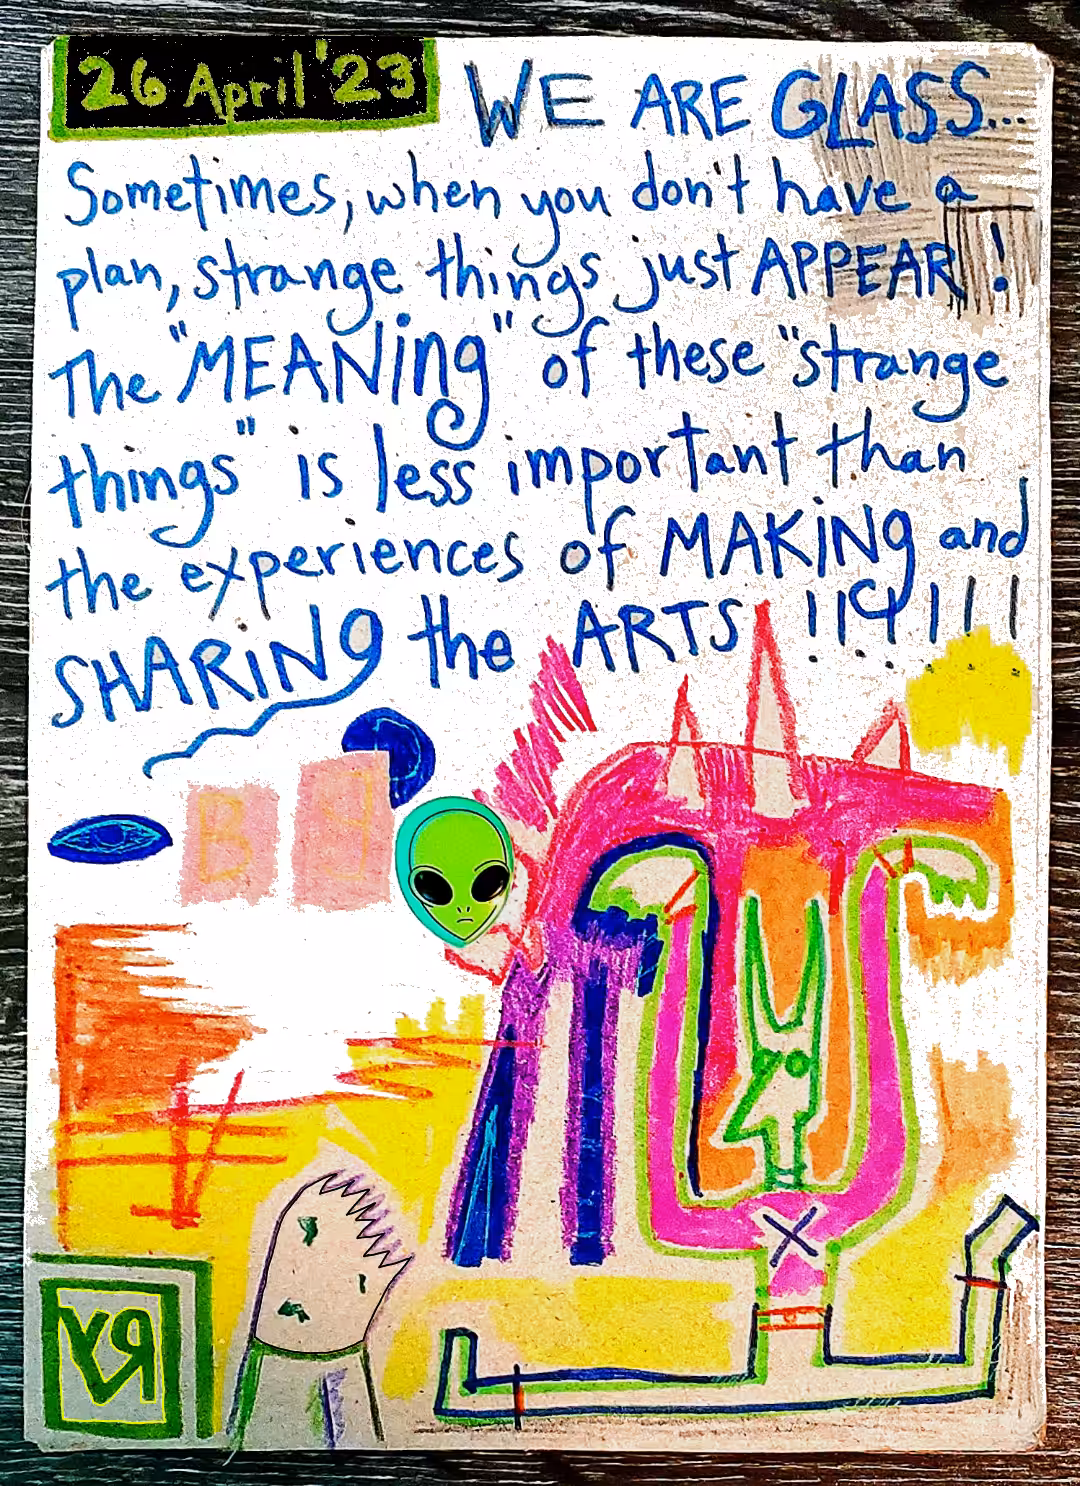 26 April '23
WE ARE GLASS...
Sometimes, when you don't have a
plan, strange things just APPEAR!
The "MEANing" of these "strange
things" is less important than
the experiences of MAKiNg and
SHARiNg the ARTS !!!!!!
B Y